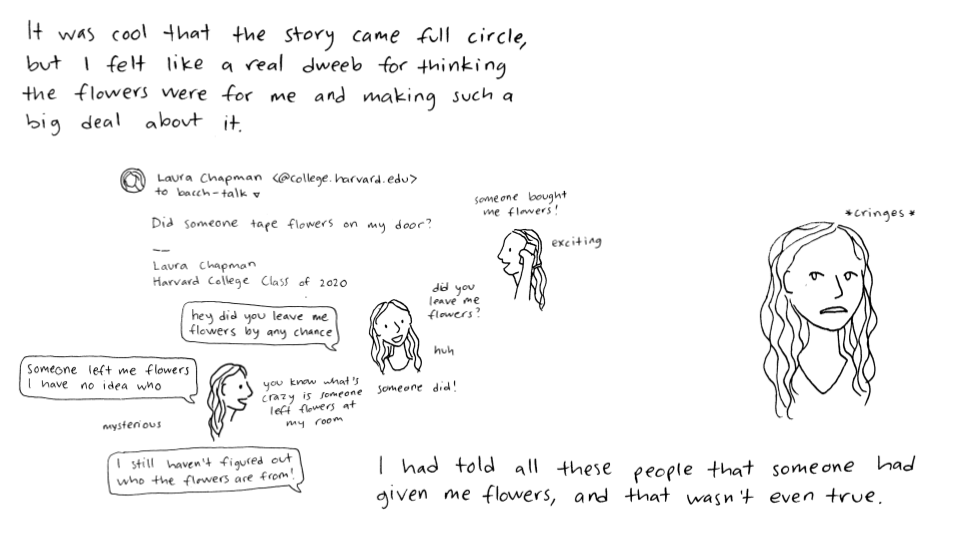 It was cool that the story came full circle,
but I felt like a real dweeb for thinking
the flowers were for me and making such a
big deal about it.
Laura Chapman <@college.harvard.edu>
to bacch-talk ▾
Did someone tape flowers on my door?
—
Laura Chapman
Harvard College Class of 2020
someone bought
me flowers!
exciting
*cringes*
hey did you leave me
flowers by any chance
did you
leave me
flowers?
huh
someone did!
Someone left me flowers
I have no idea who
mysterious
you know what's
crazy is someone
left flowers at
my room
I still haven't figured out
who the flowers are from!
I had told all these people that someone had
given me flowers, and that wasn't even true.